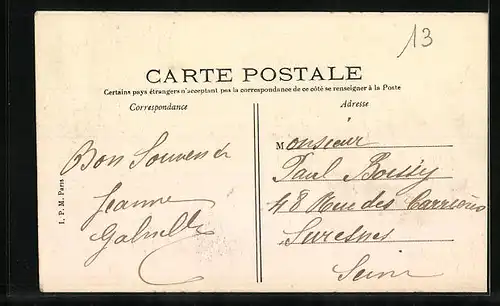 13
CARTE POSTALE
Certains pays étrangers n'acceptant pas la correspondance de ce côté se renseigner à la Poste
Correspondance
Adresse
Bon Souvenir
Jeanne
Gabrielle
Monsieur
Paul Boissy
48 Rue des Carrières
Suresnes
Seine
I. P. M. Paris